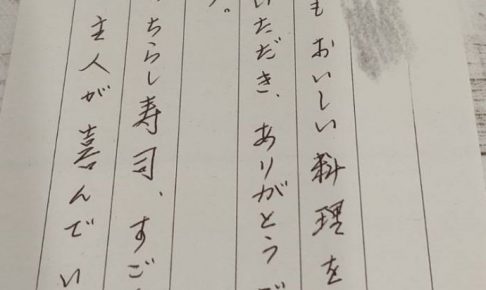 も おいしい料理を
いただき、ありがとうご
う。
ちらし寿司、すご
主人が喜んでい